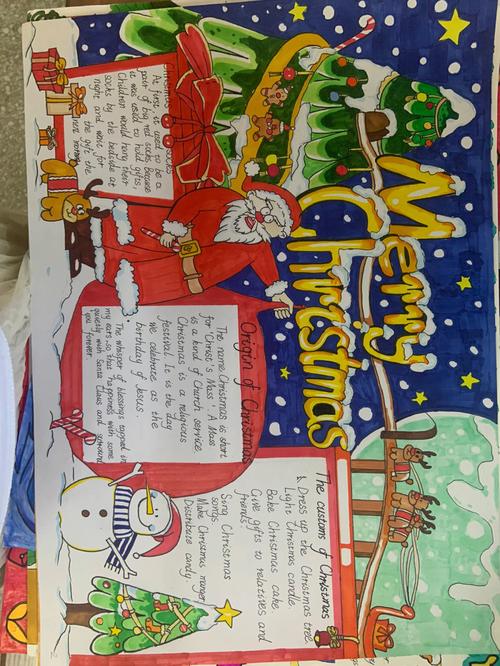 Merry
Christmas
At first it used to be a
pair of big red socks. Because
it was used to hold gifts,
Children would hang their
socks by the bedside at
night and wait for
the gift the
next
Origin of Christmas
The name Christmas is short
for "Christ's Mass". A Mass
is a kind of Church service
Christmas is a religious
festival. It is the day
we celebrate as the
birthday of Jesus.
The whisper of blessings tapped in
my ears, so that happiness with some
quietly with Santa Claus and surround
you forever.
The customs of Christmas
Dress up the Christmas tree
Light Christmas candle.
Bake Christmas cake.
Give gifts to relatives and
friends.
Sing Christmas
songs.
Make Christmas manger
Distribute candy